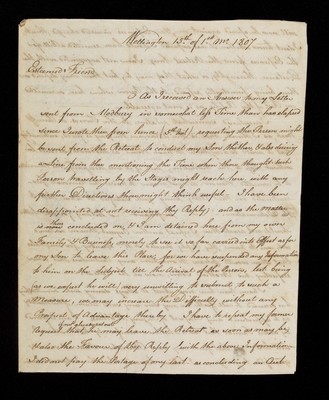 Wellington 13th of 1st Mo 1807
Esteemed Friend
As I received an Answer to my Letter
sent from Modbury in somewhat less Time than has elapsed
since I wrote thee from hence (5th Inst) requesting the Person might
be sent from the Retreat to conduct my Son thither, Also desiring
a Line from thee mentioning the Time when thou thought such
Person travelling by the Stages might reach here with any
further Directions thou might think useful. I have been
disappointed at not receiving thy Reply, and as the matter
is now concluded on, & I am detained here from my own
Family & Business merely to see it so far carried into Effect as for
my Son to leave this Place, for we have suspended any Information
to him on the Subject till the Arrival of the Person, lest being
(as we expect he will) very unwilling to submit to such a
Measure, we may increase the Difficulty without any
Prospect of Advantage thereby. I have to repeat my former
request that he may leave the Retreat as soon as may be,
Also the Favour of thy Reply with the above Information
I did not pay the Postage of my last as concluding an